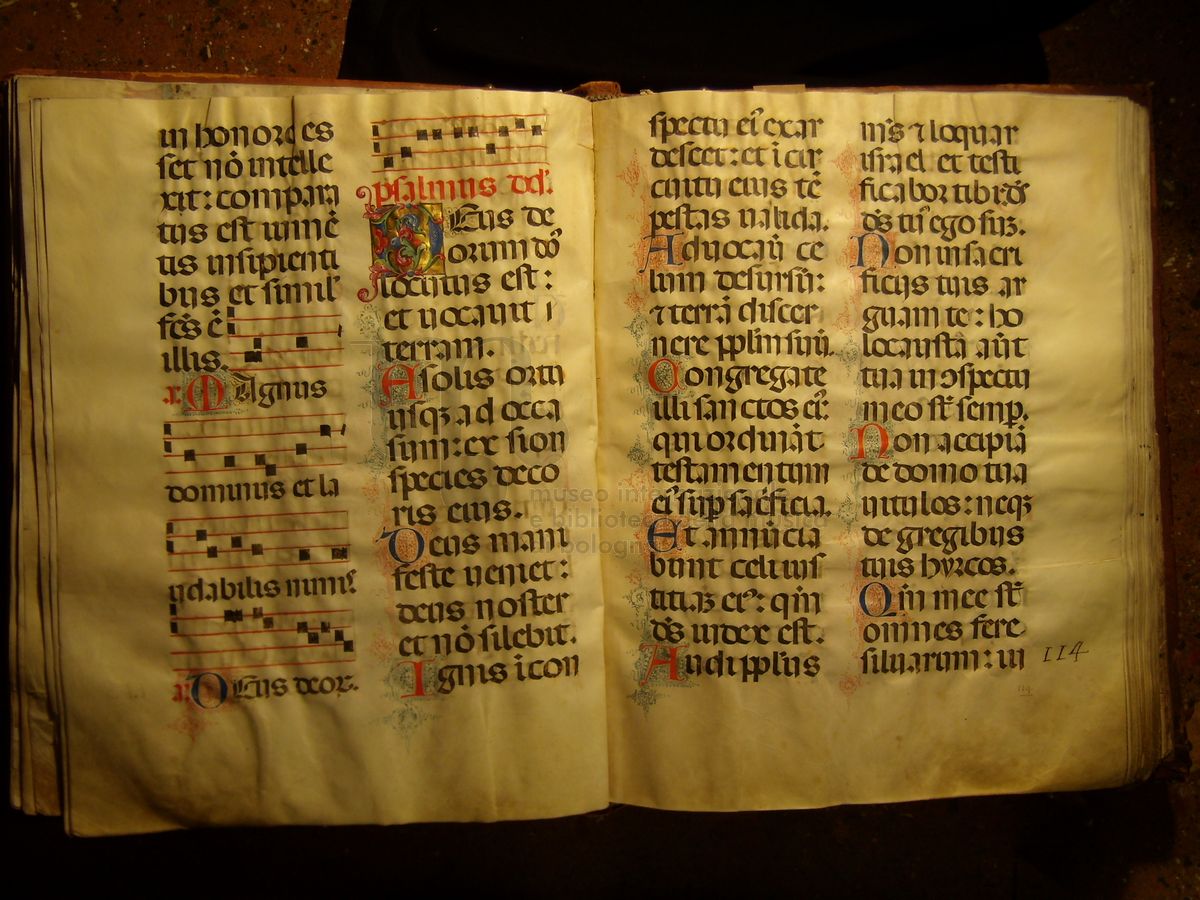 in honore es
set nō intelle
xit: compara
tus est iumē
tis insipienti
bus et simil'
fc̄s ē
illis.
Magnus
dominus et la
udabilis nimis
a. Deus deor.
psalmus dd.
Deus de
orum dō
locutus est:
et uocauit
terram.
A solis ortu
usqz ad occa
sum: ex sion
species deco
ris eius.
Deus mani
feste ueniet:
deus noster
et nō silebit.
Ignis i con
spectu ei' exar
descet: et i cir
cuitu eius tē
pestas ualida.
Aduocau' ce
lum desursū:
⁊ terrā discer
nere pplm suū.
Congregate
illi sanctos ei':
qui ordināt
testamentum
ei' sup sac'ficia.
Et annūcia
bunt celi ius
titiā ei': qm
ds iudex est.
Audi ppl's
meus ⁊ loquar
israel et testi
ficabor tibi ds
ds tu' ego suz.
Non in sacri
ficijs tuis ar
guam te: ho
locausta aūt
tua in ɔspectu
meo st̄ semp.
Non accipiā
de domo tua
uitulos: neqz
de gregibus
tuis hyrcos.
Qm mee st̄
omnes fere
siluarum: iu
114
museo inte
e bibliotec
bologna